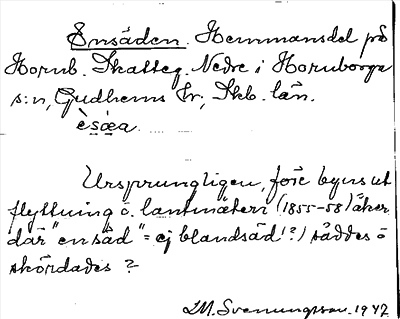 Ensäden. Hemmansdel på
Hornb. Skatteg. Nedre i Hornborga
s:n, Gudhems hr, Skb. län.
èsæa
Ursprungligen, före byns ut
flyttning o. lantmäteri (1855-58) åker
där "ensäd" = ej blandsäd (?) såddes o
skördades?
M. Svenungsson. 1947